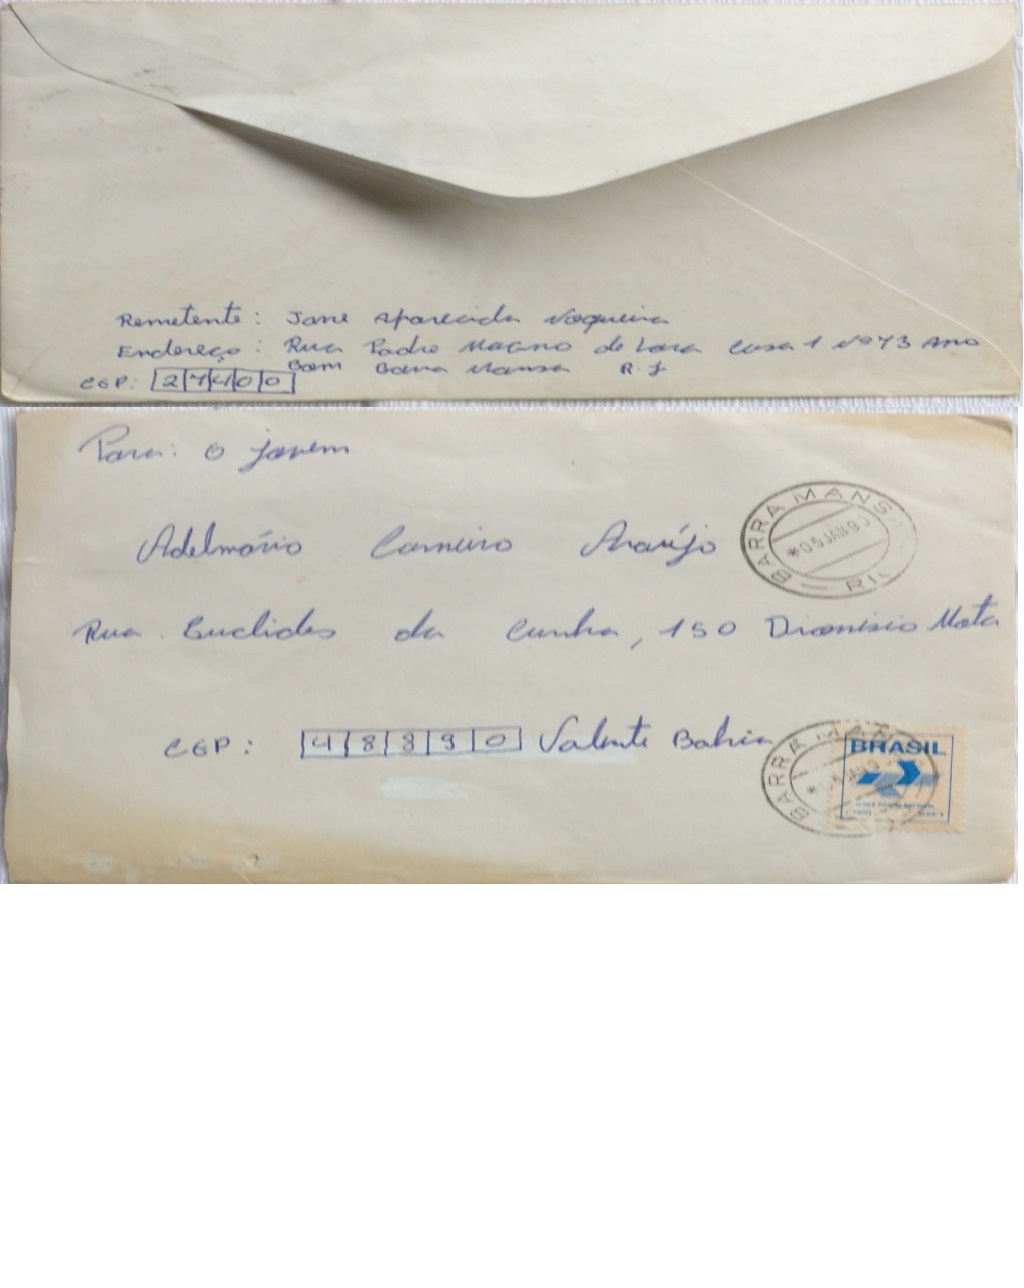 Remetente: Jane Aparecida Nogueira
Endereço: Rua Padre Magno de Lara Casa 1 Nº 73 Ano
Bom Barra Mansa R.J
CEP: 27400
Para: O jovem
BARRA MANSA
*05JAN9
Adelmário Carneiro Araújo
Rua Euclides da Cunha, 150 Dionísio Mota
CEP: 48890 Valente Bahia
BARRA MAN
BRASIL